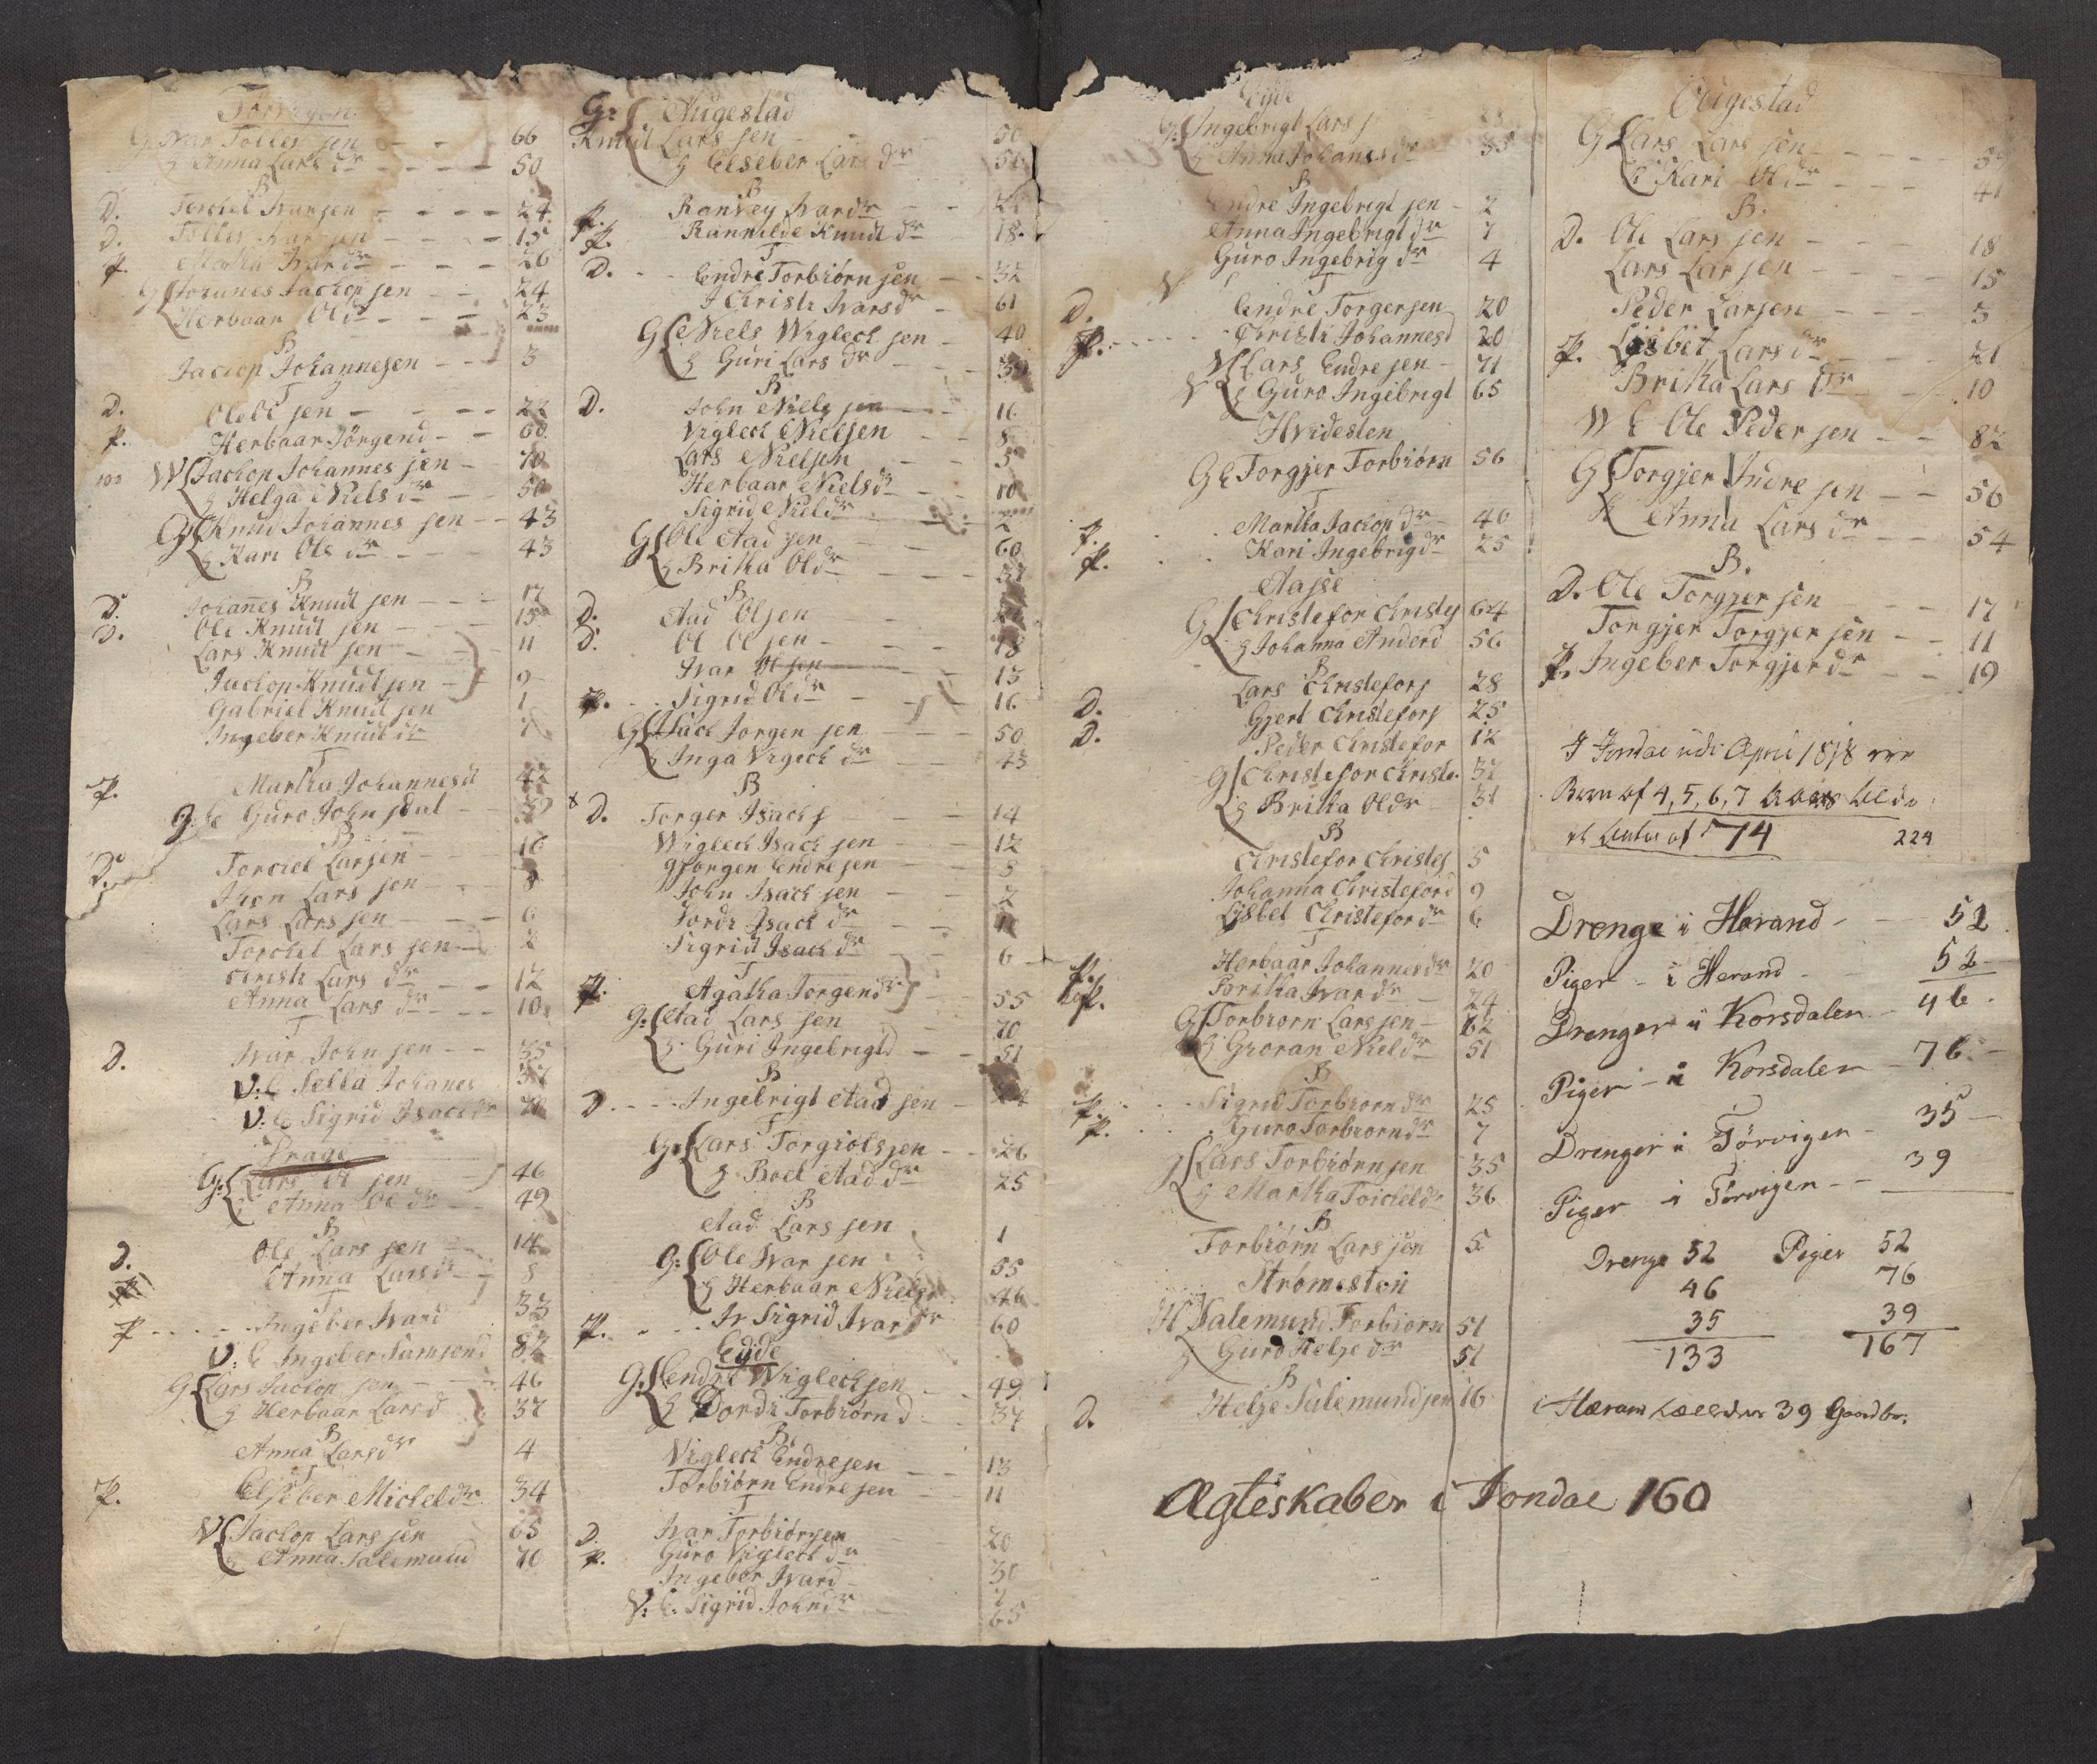 Torvigen
G Ivar Tolleifsen - - 66
h Anna Lars dr - - - - 50
B
D. Torckel Ivarsen - - - - 24
D. Tolleif Ivarsen - - - - 15
p. Ivar dr - - - - 26
G Johannes Jackopsen - - 24
Herbaar Ol dr - - - 23
B
Jackop Johannesen - - 3
T
D. Ole Ol sen - - - - 22
p. Herbaar Jörgend - - 60
W Jackop Johannes sen - 70
h Helga Niels dr - 50
G Knud Johannes sen - - 43
h Kari Ols dr - - - 43
B
D. Johannes Knud sen - - - 17
D. Ole Knud sen - - - 15
Lars Knud sen - - - 11
Jackop Knud sen - - 9
Gabriel Knud sen 1
Ingeber Knud dr 7
T
p. Martha Johannesd 42
g. E Guro John sdat -
B
D. Torckel Larsen - - 16
Lars sen - - - 8
Lars Lars sen - - - - 6
Torckel Lars sen - 2
Christi Lars dr - - 12
Anna Lars dr - - - 10
T
D. Ivar John sen - - 35
V: E Sella Johanes
V: E Sigrid Isack dr 70
Prage
G: Lars Ol sen - 46
h Anna Ol dr - - 49
B
D. Ole Lars sen 14
p Anna Lars dr 8
T
p - - - - Ingeber Ivard 33
V: E Ingeber Samsond 82
G Lars Jackop sen - - - 46
h Herbaar Lars d 37
B
Anna Lars dr 4
T
p. Elseber Mickel dr 34
V Jackop Lars sen 65
h Anna Salemund 70
G: Augestad
Knud Lars sen - - 50
h Elseber Lars dr
B
p. Ranvey Ivar dr - -
p. Rannilde Knud dr 18
T
D. - - Endre Torbiørn sen - - 32
I Christi Ivars dr - 61
G Niels Wigleck sen - 40
h Guri Lars dr - - - 39
B
D. John Niels sen - - 16
Vigleck Nielsen - - 8
Lars Nielsen - - 5
Herbaar Niels dr - - 10
Sigrid Niel dr - - 2
G Ole Aad sen - - - 60
h Britha Ol dr - - - 37
B
D. Aad Olsen - - -
D. Ol Ol sen - - - 18
Ivar Ol sen 13
p. - - Sigrid Ol dr - 16
G Isack Jorgen sen - - 50
h Inga Vigeck dr - - - 43
B
x D. Torger Isack s - - - 14
Wigleck Isack sen - - 12
Gjorgen Endre sen - - 8
John Isack sen - - 2
Tordi Isack dr - - 11
Sigrid Isack dr - - 6
T
p. Agatha Jorgen dr - 55
g: Aad Lars sen - - 70
h Guri Ingebrigtd - - 51
B
D. - - - Ingebrigt Aad sen -
T
G: Lars Torgiolssen - - 26
h Boel Aad dr - - 25
B
Aad Lars sen 1
g: Ole Ivar sen - 55
h Herbaar Niels dr 46
p. - - - Iv Sigrid Ivar dr 60
Eyde
G: Endre Wigleck sen - 49
h Dordi Torbiørn d - 37
B
Vigleck Endresen - - 13
Torbiørn Endre sen - - 11
T
D. Ivar Torbiørnsen 20
p. Guro Vigleck dr 30
Ingeber Ivard 7
V: E. Sigrid John dr - 65
Eyde
g: Ingebrigt Lars s
h Anna Johanes dr 35
B
Endre Ingebrigt sen - 2
Anna Ingebrigt dr 7
Guro Ingebrig dr 4
T
D. Endre Torgersen 20
p. - - - - - Christi Johannesd 20
V Lars Endre sen - 71
V h Guro Ingebrigt 65
Hvidesten
G E Torgjer Torbiörn 56
T
p. Martha Jackop dr - 40
p. Kari Ingebrig dr - 25
Aasse
G Christefor Christef 64
h Johanna Anderd 56
B
D. Lars Christefors 28
D. Gjert Christefors 25
Peder Christefor 12
G Christefor Christe. 37
h Britha Ol dr - 31
B
Christefor Christef 5
Johanna Christeford 9
Lisbet Christefor dr 6
T
p. Herbaar Johannes dr 20
p. Britha Ivar dr - 24
G Torbiorn Lars sen - 62
h Gioran Niel dr - 51
B
p. - - - Sigrid Torbiorn dr 25
p. - - Guro Torbiorn dr 7
g Lars Torbiörn sen 35
h Martha Torckel dr 36
B
Torbiörn Lars sen 5
Strømesten
H Salemund Torbiorn 51
h Gurd Helje dr - 51
B
D. Helje Salemund sen 16
Augestad
G Lars Lars sen - - - -
h Kari Ol dr - - - 41
B.
D. Ole Lars sen - - - 18
Lars Larsen - - - - 15
Peder Larsen - - - 3
p. Lisbet Lars dr - - - 21
Britha Lars dr - - - 10
W E Ole Peder sen - - 82
G Torgjer Indre sen - - 56
h Anna Lars dr - - 54
B.
D. Ole Torgjer sen - - 17
Torgjer Torgjer sen - - 11
p. Ingeber Torgjer dr - - 19
I Jondal April 1818
Børn af 4, 5, 6, 7 Aars
af 74 224
Drenge i Herand - - 52
Piger - i Herand - - 52
Drenger i Korsdalen - 46
Piger - i Korsdalen - 76
Drenger i Törvigen - 35
Piger - i Törvigen - - 39
Drenge 52 Piger 52
46 76
35 39
133 167
i Hærand 39 Gaardbr.
Ægteskaber i Jondal 160